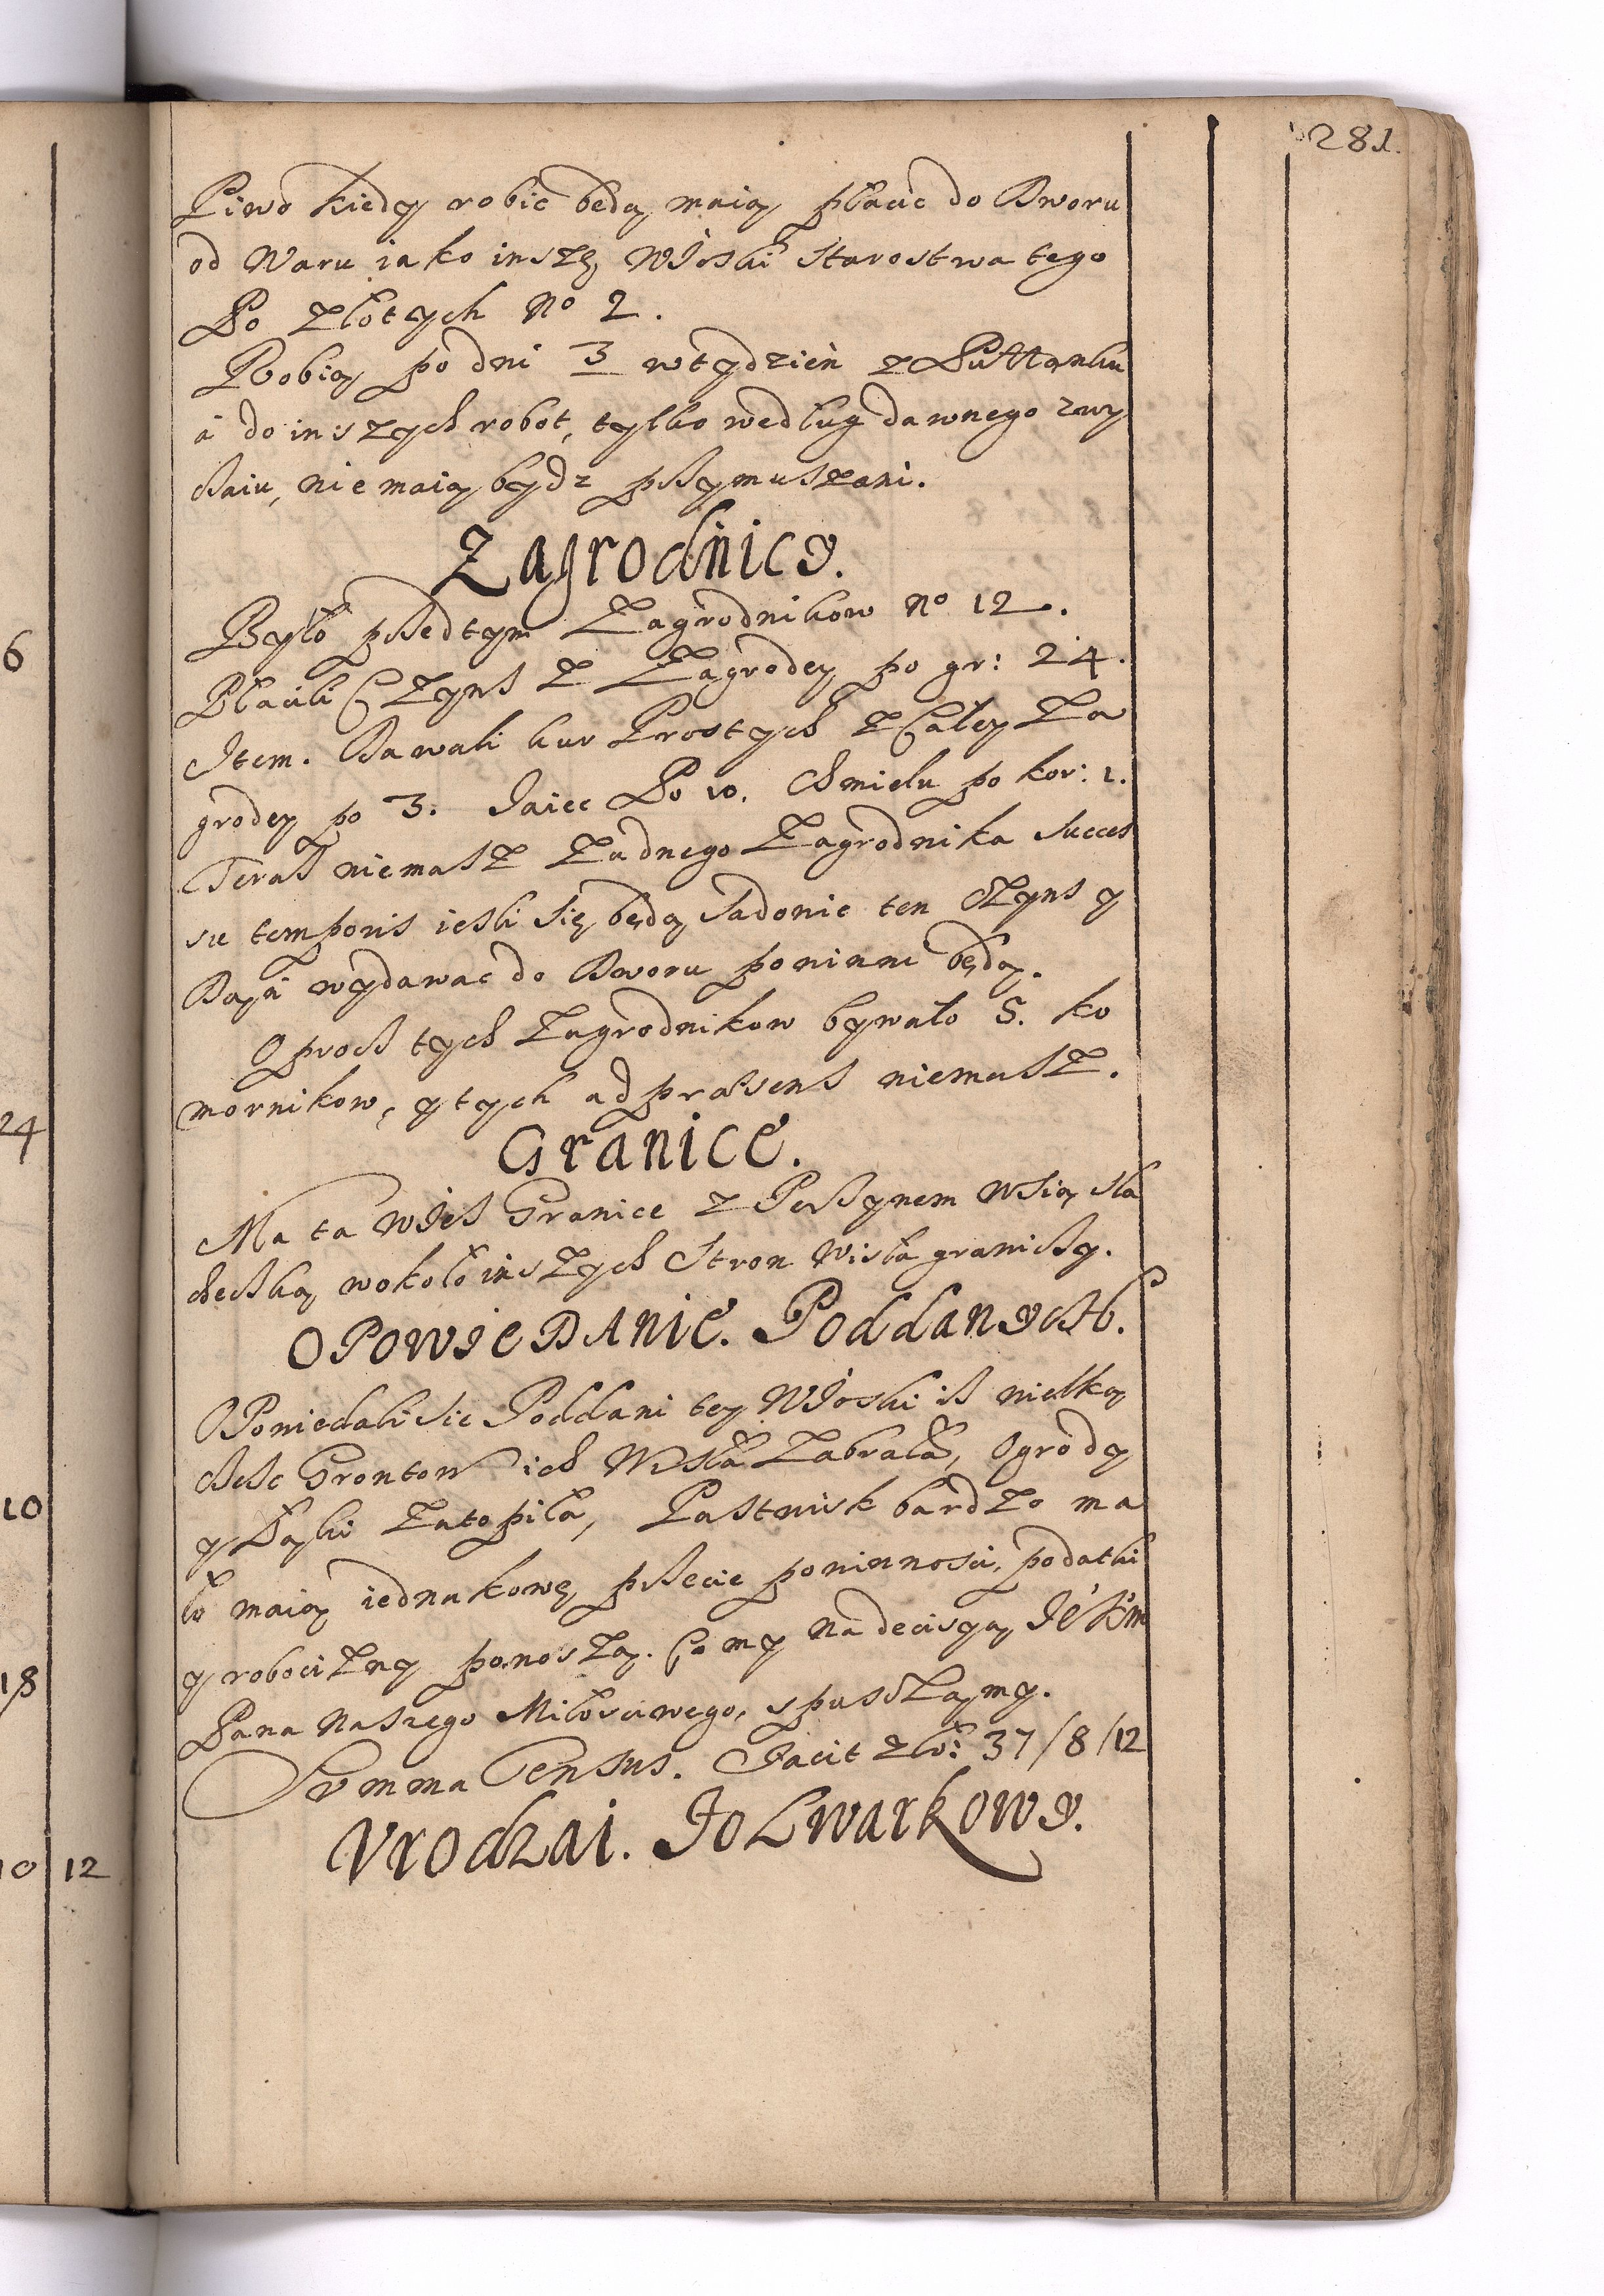 281.
Piwo kiedy robić będą, maią płacić do Dworu
od Waru iako insze Wioski Starostwa tego
Po złotych No 2.
Robią po dni 3 w tydzień z Pułłanku
á do inszych robot, tylko według dawnego zwy
czaiu, nie maią bydz przymuszani.
Zagrodnicy.
Było przedtym Zagrodnikow No 12.
Płacili Czyns z Zagrody po gr: 24.
Item. Dawali kur Prostych z Całey Za
grody po 3. Jaiec Po 10. Chmielu po kor: 1.
Teraz niemasz żadnego Zagrodnika Succes
su temporis iesli się będą Sadonic ten Czyns y
Dań wydawac do Dworu powinni będą.
Oprocz tych Zagrodnikow bywało 5. ko
mornikow, y tych ad præsens niemasz.
Granice.
Ma ta Wies Granice z Wsią sla
checką, wokoło inszych Stron Wisła graniczy.
OPOWIEDANIE. Poddanych.
Opowiedali się Poddani tey Wioski iż wielką
częsc Grontow ich Wisła Zabrała, Ogrody
y Łąki Zatopiła, Pastwisk bardzo ma
ło maią, iednakowe przecie powinnosci, podatki
y robocizny ponoszą. Co my na decisyą JéKm
Pana Naszego Miłosciwego, spuszczamy.
Summa Census. Facit zło: 37/8/12
Vrodzai. Folwarkowy.
6
24
10
18
10 12